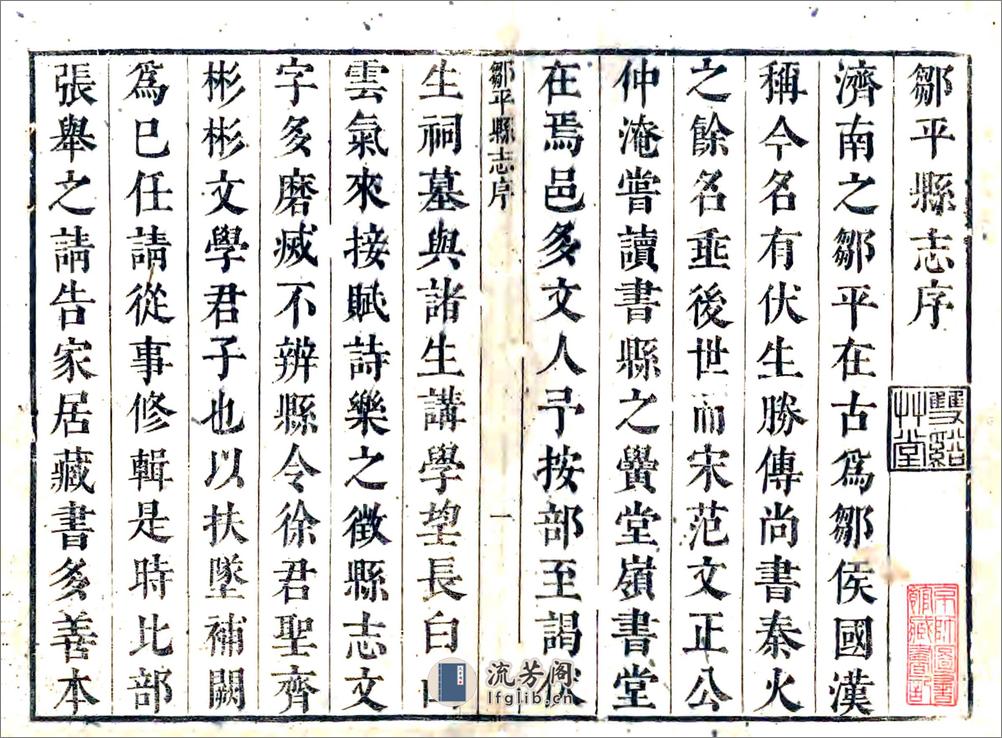 鄒平縣志序
濟南之鄒平在古爲鄒侯國漢
稱今名有伏生勝傳尚書秦火
之餘名垂後世而宋范文正公
仲淹嘗讀書縣之黌堂嶺書堂
在焉邑多文人予按部至謁伏
鄒平縣志序
一
生祠墓與諸生講學望長白山
雲氣來接賦詩樂之徵縣志文
字多磨滅不辨縣令徐君聖齊
彬彬文學君子也以扶墜補闕
爲已任請從事修輯是時比部
張舉之請告家居藏書多善本
雙谿艸堂
京師圖書館藏書記
流芳阁
lfglib.cn